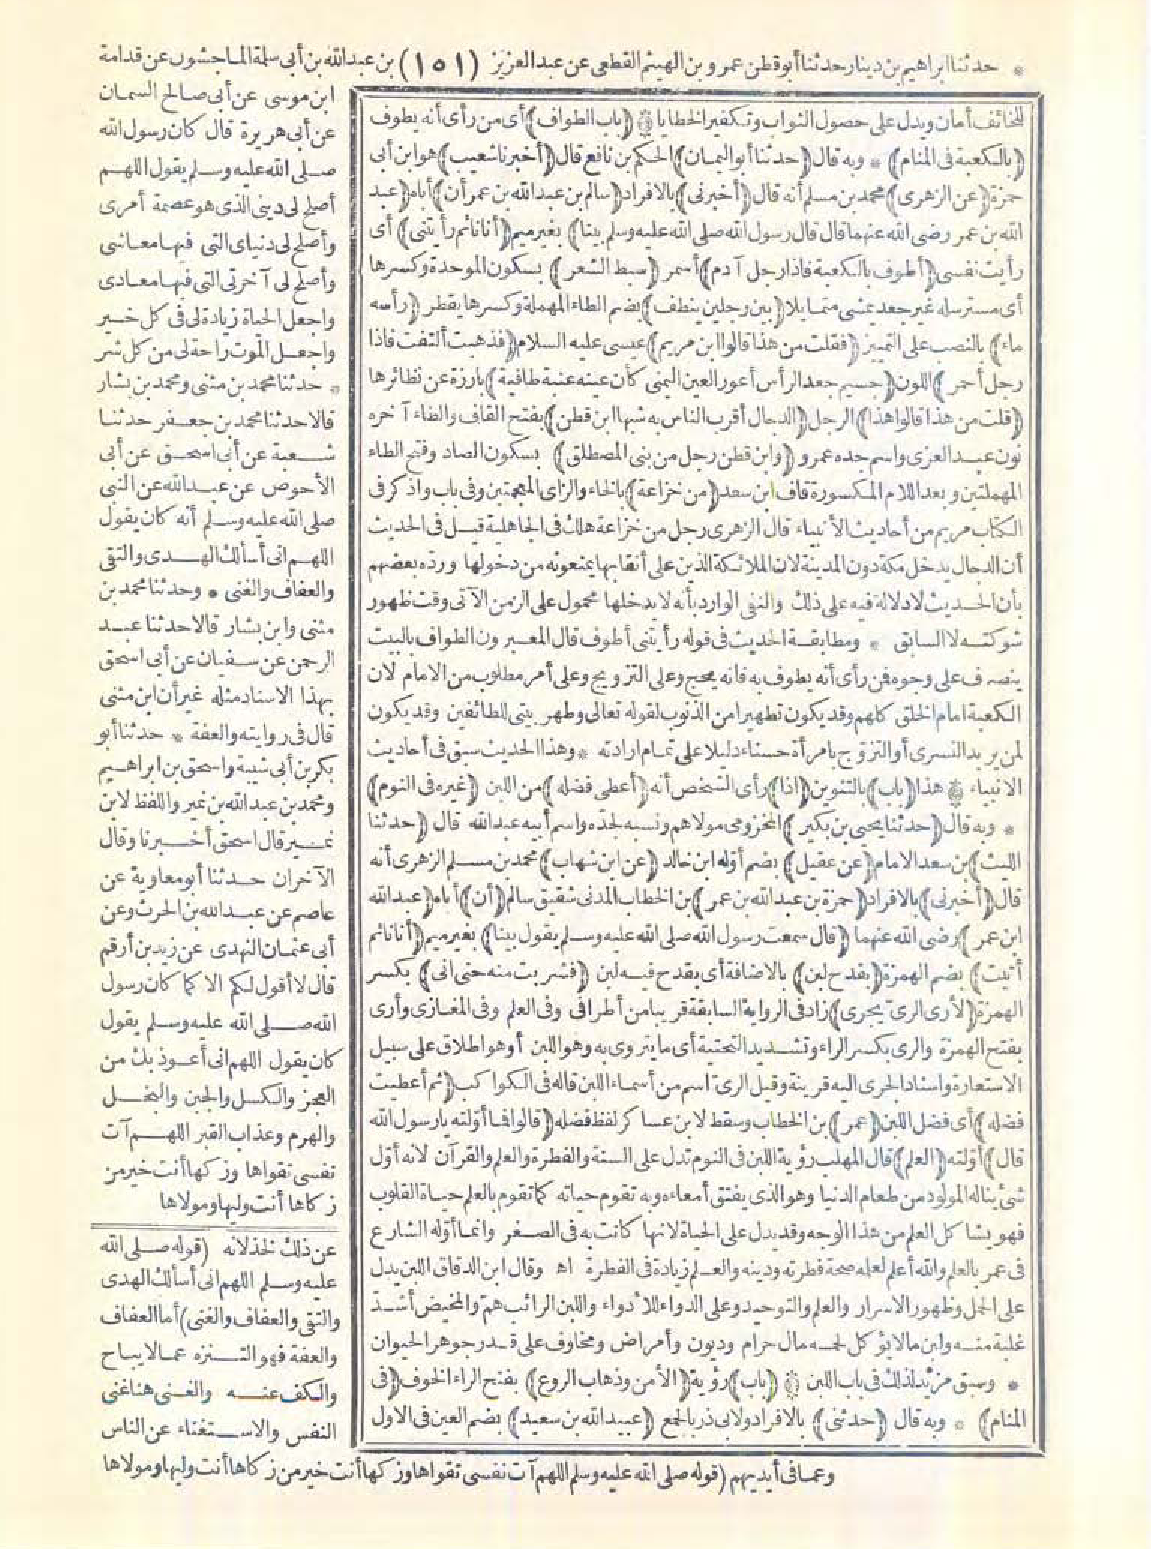 * حدثنا ابراهيم بن دينار حدثنا أبو قطن عمرو بن الهيثم القطعى عن عبد العزيز (١٥١) بن عبد الله بن أبى سلمة الماجشون عن قدامة
ابن موسى عن أبى صالح السمان
عن أبى هريرة قال كان رسول الله
صلى الله عليه وسلم يقول اللهم
أصلح لى دينى الذى هو عصمة أمرى
وأصلح لى دنياى التى فيها معاشى
وأصلح لى آخرتى التى فيها معادى
واجعل الحياة زيادة لى فى كل خير
واجعل الموت راحة لى من كل شر
* حدثنا محمد بن مثنى ومحمد بن بشار
قالا حدثنا محمد بن جعفر حدثنا
شعبة عن أبى اسحق عن أبى
الأحوص عن عبد الله عن النبى
صلى الله عليه وسلم أنه كان يقول
اللهم انى أسألك الهدى والتقى
والعفاف والغنى * وحدثنا محمد بن
مثنى وابن بشار قالا حدثنا عبد
الرحمن عن سفيان عن أبى اسحق
بهذا الاسناد مثله غير أن ابن مثنى
قال فى روايته والعفة * حدثنا أبو
بكر بن أبى شيبة واسحق بن ابراهيم
ومحمد بن عبد الله بن نمير واللفظ لابن
نمير قال اسحق أخبرنا وقال
الآخران حدثنا أبو معاوية عن
عاصم عن عبد الله بن الحرث وعن
أبى عثمان النهدى عن زيد بن أرقم
قال لا أقول لكم الا كما كان رسول
الله صلى الله عليه وسلم يقول
كان يقول اللهم انى أعوذ بك من
العجز والكسل والجبن والبخل
والهرم وعذاب القبر اللهم آت
نفسى تقواها وزكها أنت خير من
زكاها أنت وليها ومولاها
عن ذلك لخذلانه (قوله صلى الله
عليه وسلم اللهم انى أسألك الهدى
والتقى والعفاف والغنى) أما العفاف
والعفة فهو التنزه عما لا يباح
والكف عنه والغنى هنا غنى
النفس والاستغناء عن الناس
وعما فى أيديهم (قوله صلى الله عليه وسلم اللهم آت نفسى تقواها وزكها أنت خير من زكاها أنت وليها ومولاها
للخائف أمان ويدل على حصول الثواب وتكفير الخطايا (باب الطواف) أى من رأى أنه يطوف
(بالكعبة فى المنام) * وبه قال (حدثنا أبو اليمان) الحكم بن نافع قال (أخبرنا شعيب) هو ابن أبى
حمزة (عن الزهرى) محمد بن مسلم أنه قال (أخبرنى) بالافراد (سالم بن عبد الله بن عمر أن) أباه (عبد
الله بن عمر رضى الله عنهما قال قال رسول الله صلى الله عليه وسلم بينا) بغير ميم (أنا نائم رأيتنى) أى
رأيت نفسى (أطوف بالكعبة فاذا رجل آدم) أسمر (سبط الشعر) بسكون الموحدة وكسرها
أى مسترسله غير جعد يمشى متمايلا (بين رجلين ينطف) بضم الطاء المهملة وكسرها يقطر (رأسه
ماء) بالنصب على التمييز (فقلت من هذا قالوا ابن مريم) عيسى عليه السلام (فذهبت ألتفت فاذا
رجل أحمر) اللون (جسيم جعد الرأس أعور العين اليمنى كأن عينه عنبة طافية) بارزة عن نظائرها
(قلت من هذا قالوا هذا) الرجل (الدجال أقرب الناس به شبها ابن قطن) بفتح القاف والطاء آخره
نون عبد العزى واسم جده عمرو (وابن قطن رجل من بنى المصطلق) بسكون الصاد وفتح الطاء
المهملتين وبعد اللام المكسورة قاف ابن سعد (من خزاعة) بالخاء والزاى المعجمتين وفى باب واذكر فى
الكتاب مريم من أحاديث الأنبياء قال الزهرى رجل من خزاعة هلك فى الجاهلية قيل فى الحديث
أن الدجال يدخل مكة دون المدينة لان الملائكة الذين على أنقابها يمنعونه من دخولها ورده بعضهم
بأن الحديث لا دلالة فيه على ذلك والنفى الوارد بأنه لا يدخلها محمول على الزمن الآتى وقت ظهور
شوكته لا السابق * ومطابقة الحديث فى قوله رأيتنى أطوف قال المعبرون الطواف بالبيت
ينصرف على وجوه فمن رأى أنه يطوف به فانه يحج وعلى التزويج وعلى أمر مطلوب من الامام لان
الكعبة امام الخلق كلهم وقد يكون تطهيرا من الذنوب لقوله تعالى وطهر بيتى للطائفين وقد يكون
لمن يريد التسرى أو التزوج بامرأة حسناء دليلا على تمام ارادته * وهذا الحديث سبق فى أحاديث
الانبياء هذا (باب) بالتنوين (اذا) رأى الشخص أنه (أعطى فضله) من اللبن (غيره فى النوم)
* وبه قال (حدثنا يحيى بن بكير) المخزومى مولاهم ونسبه لجده واسم أبيه عبد الله قال (حدثنا
الليث) بن سعد الامام (عن عقيل) بضم أوله ابن خالد (عن ابن شهاب) محمد بن مسلم الزهرى أنه
قال (أخبرنى) بالافراد (حمزة بن عبد الله بن عمر) بن الخطاب المدنى شقيق سالم (أن) أباه (عبد الله
ابن عمر) رضى الله عنهما (قال سمعت رسول الله صلى الله عليه وسلم يقول بينا) بغير ميم (أنا نائم
أتيت) بضم الهمزة (بقدح لبن) بالاضافة أى بقدح فيه لبن (فشربت منه حتى انى) بكسر
الهمزة (لأرى الرى يجرى) زاد فى الرواية السابقة قريبا من أطرافى وفى العلم وفى المغازى وأرى
بفتح الهمزة والرى بكسر الراء وتشديد التحتية أى ما يتروى به وهو اللبن أو هو اطلاق على سبيل
الاستعارة واسناد الجرى اليه قرينة وقيل الرى اسم من أسماء اللبن قاله فى الكواكب (ثم أعطيت
فضله) أى فضل اللبن (عمر) بن الخطاب وسقط لابن عساكر لفظ فضله (قالوا فما أولته يا رسول الله
قال) أولته (العلم) قال المهلب رؤية اللبن فى النوم تدل على السنة والفطرة والعلم والقرآن لانه أول
شئ يناله المولود من طعام الدنيا وهو الذى يفتق أمعاءه وبه تقوم حياته كما تقوم بالعلم حياة القلوب
فهو يشاكل العلم من هذا الوجه وقد يدل على الحياة لانها كانت به فى الصغر وانما أوله الشارع
فى عمر بالعلم والله أعلم لعلمه صحة فطرته ودينه والعلم زيادة فى الفطرة اه وقال ابن الدقاق اللبن يدل
على الحمل وظهور الاسرار والعلم والتوحيد وعلى الدواء للأدواء واللبن الرائب هم والمخيض أشد
غلبة منه ولبن ما لا يؤكل لحمه مال حرام وديون وأمراض ومخاوف على قدر جوهر الحيوان
* وسبق مزيد لذلك فى باب اللبن (باب) رؤية (الأمن وذهاب الروع) بفتح الراء الخوف (فى
المنام) * وبه قال (حدثنى) بالافراد ولابى ذر بالجمع (عبيد الله بن سعيد) بضم العين فى الاول